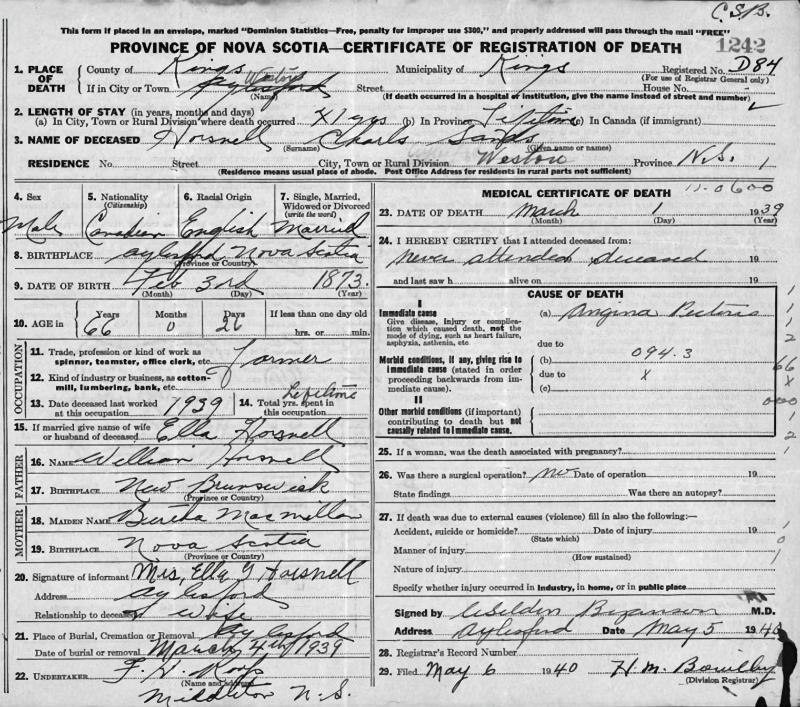 C.S.B.
This form if placed in an envelope, marked "Dominion Statistics—Free, penalty for improper use $300," and properly addressed will pass through the mail "FREE"
PROVINCE OF NOVA SCOTIA—CERTIFICATE OF REGISTRATION OF DEATH
1242
1. PLACE OF DEATH
County of Kings Municipality of Kings Registered No. D84
(For use of Registrar General only)
If in City or Town Aylesford Weston Street House No.
(Name) (If death occurred in a hospital of institution, give the name instead of street and number)
2. LENGTH OF STAY (in years, months and days)
(a) In City, Town or Rural Division where death occurred (b) In Province Lifetime (c) In Canada (if immigrant)
3. NAME OF DECEASED Horsnell Charls Sands
(Surname) (Given name or names)
RESIDENCE No. Street City, Town or Rural Division Weston Province N.S. 1
(Residence means usual place of abode. Post Office Address for residents in rural parts not sufficient)
4. Sex Male
5. Nationality (Citizenship) Canadian
6. Racial Origin English
7. Single, Married, Widowed or Divorced (write the word) Married
8. BIRTHPLACE Aylesford Nova Scotia
(Province or Country)
9. DATE OF BIRTH Feb 3rd 1873.
(Month) (Day) (Year)
10. AGE in Years 66 Months 0 Days 26 If less than one day old hrs. or min.
OCCUPATION
11. Trade, profession or kind of work as spinner, teamster, office clerk, etc. Farmer
12. Kind of industry or business, as cotton-mill, lumbering, bank, etc.
13. Date deceased last worked at this occupation 1939
14. Total yrs. spent in this occupation Lifetime
15. If married give name of wife or husband of deceased Ella Horsnell
FATHER
16. NAME William Horsnell
17. BIRTHPLACE New Brunswick
(Province or Country)
MOTHER
18. MAIDEN NAME Bertha
19. BIRTHPLACE Nova Scotia
(Province or Country)
20. Signature of informant Mrs, Ella G Horsnell
Address Aylesford
Relationship to deceased Wife
21. Place of Burial, Cremation or Removal Aylesford
Date of burial or removal March 4th 1939
22. UNDERTAKER
(Name and address)
Middleton N.S.
MEDICAL CERTIFICATE OF DEATH
23. DATE OF DEATH March 1 1939
(Month) (Day) (Year)
24. I HEREBY CERTIFY that I attended deceased from:
never attended deceased 19
and last saw h alive on 19
CAUSE OF DEATH
I
Immediate cause
Give disease, injury or complication which caused death, not the mode of dying, such as heart failure, asphyxia, asthenia, etc.
(a) Angina Pectoris
due to
Morbid conditions, if any, giving rise to immediate cause (stated in order proceeding backwards from immediate cause).
(b) 094.3
due to x
(c)
II
Other morbid conditions (if important) contributing to death but not causally related to immediate cause.
25. If a woman, was the death associated with pregnancy?
26. Was there a surgical operation? no Date of operation 19
State findings Was there an autopsy?
27. If death was due to external causes (violence) fill in also the following:—
Accident, suicide or homicide? Date of injury 19
(State which)
Manner of injury
(How sustained)
Nature of injury
Specify whether injury occurred in industry, in home, or in public place
Signed by M.D.
Address Aylesford Date May 5 1940
28. Registrar's Record Number
29. Filed May 6 1940 H. M. Bowlby
(Division Registrar)